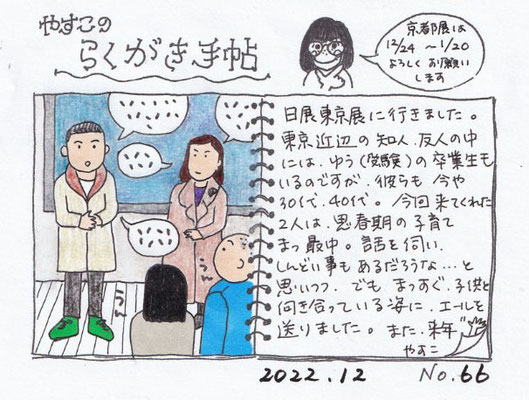 やすこの
らくがき手帖
京都展は
12/24 〜1/20
よろしくお願い
します
日展東京展に行きました。
東京近辺の知人、友人の中
には、ゆう(受験)の卒業生も
いるのですが、彼らも今や
30代、40代。今回来てくれた
2人は、思春期の子育て
まっ最中。話を伺い、
しんどい事もあるだろうな…と
思いつつ、でもまっすぐ、子供と
向き合っている姿に、エールを
送りました。また、来年
やすこ
うん
うん
2022.12 No.66